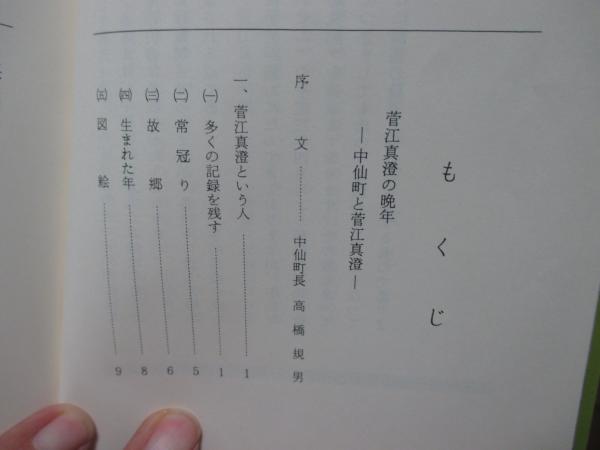 もくじ
菅江真澄の晩年
―中仙町と菅江真澄―
序文…………中仙町長 高橋規男
一、菅江真澄という人…………1
㈠ 多くの記録を残す…………1
㈡ 常冠り…………5
㈢ 故郷…………6
㈣ 生まれた年…………8
㈤ 図絵…………9